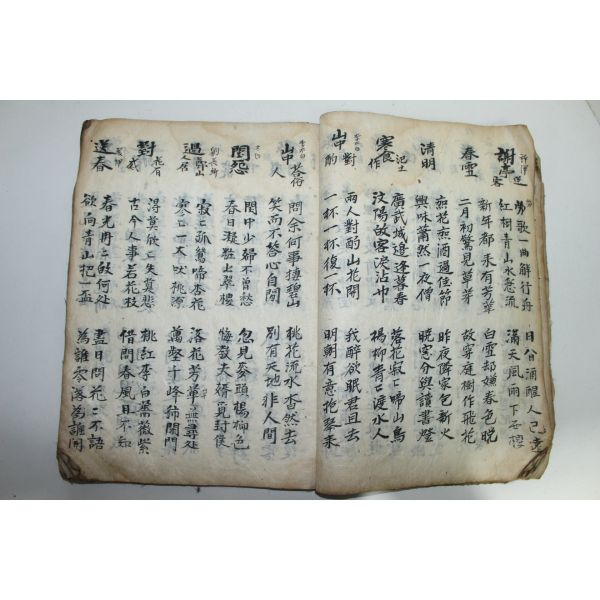 謝亭送客
許渾
勞歌一曲解行舟
紅樹青山水急流
日暮酒醒人已遠
滿天風雨下西樓
春雪
新年都未有芳華
二月初驚見草芽
白雪却嫌春色晚
故穿庭樹作飛花
清明
無花無酒過佳節
興味蕭然一夜僧
昨夜鄰家乞新火
曉窓分與讀書燈
寒食
汜上作
廣武城邊逢暮春
汶陽故客淚沾巾
落花寂〻歸山鳥
楊柳青〻渡水人
山中對酌
李太白
兩人對酌山花開
一杯一杯復一杯
我醉欲眠君且去
明朝有意抱琴來
山中答俗人
李太白
問余何事棲碧山
笑而不答心自閑
桃花流水杳然去
別有天地非人間
閨怨
閨中少婦不曾愁
春日凝粧上翠樓
忽見麥頭楊柳色
悔敎夫婿覓封侯
過鄭山人居
劉長卿
寂〻孤鶯啼杏花
寥〻一犬吠桃源
落花芳草無尋處
萬壑千峰獨閉門
對花有感
得莫欣〻失莫悲
古今人事若花枝
桃紅李白薔薇紫
借問春風且不知
送春
春光冉〻歸何處
欲向青山把一盃
盡日問花〻不語
為誰零落為誰開